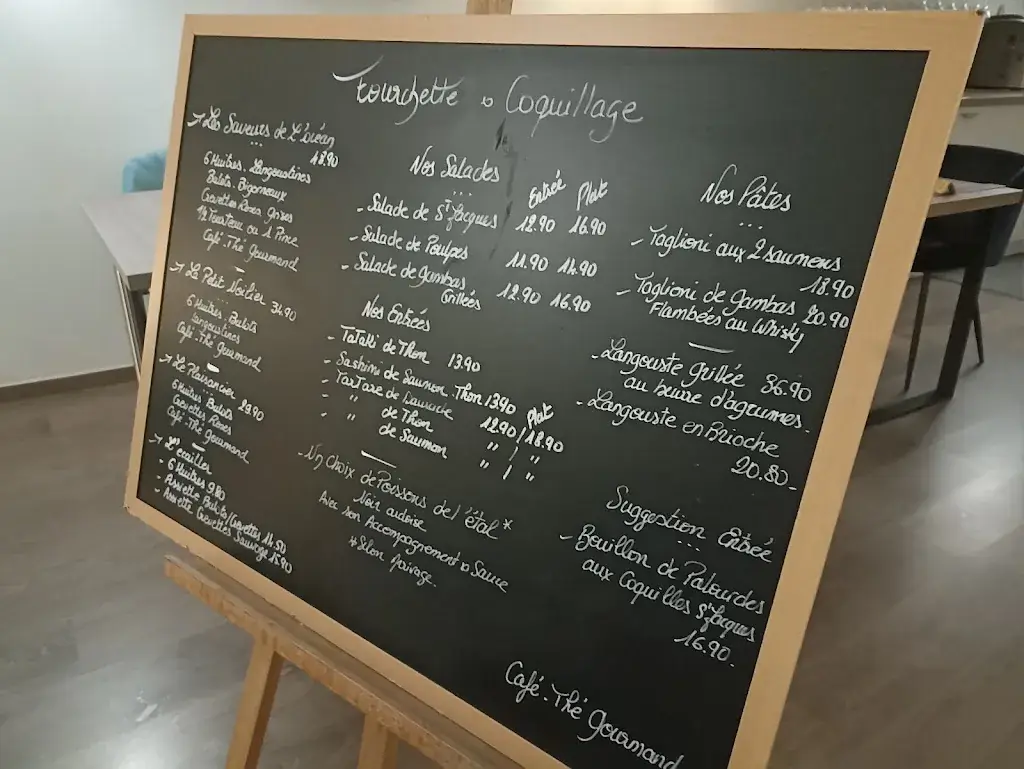 Fourchette & Coquillage
→ Les Saveurs de L'océan
48.90
6 Huîtres. Langoustines
Bulots. Bigorneaux
Crevettes Roses, Grises
1/2 Tourteau ou 1 Pince
Café-Thé Gourmand
→ Le Petit Voilier 34.90
6 Huîtres Bulots
Langoustines
Café-Thé Gourmand
→ Le Plaisancier 29.90
6 Huîtres Bulots
Crevettes Roses
Café-Thé Gourmand
→ L'écailler
- 6 Huîtres 9.80
- Assiette Bulots/Crevettes 14.50
- Assiette Crevettes Sauvage 15.90
Nos Salades
Entrée Plat
- Salade de St Jacques 12.90 16.90
- Salade de Poulpes 11.90 14.90
- Salade de Gambas Grillées 12.90 16.90
Nos Entrées
- Tataki de Thon 13.90
- Sashimi de Saumon Thon 13.90
Plat
- Tartare de Daurade 12.90/18.90
- " de Thon " / "
- " de Saumon " / "
- Un choix de Poissons de l'étal *
Voir ardoise
Avec son Accompagnement & Sauce
* Selon Arrivage.
Nos Pâtes
- Taglioni aux 2 saumons
18.90
- Taglioni de Gambas 20.90
Flambées au Whisky
- Langouste grillée 36.90
au beurre d'agrumes.
- Langouste en Brioche
20.80-
Suggestion Entrée
- Bouillon de Palourdes
aux Coquilles St Jacques
16.90.
Café-Thé Gourmand